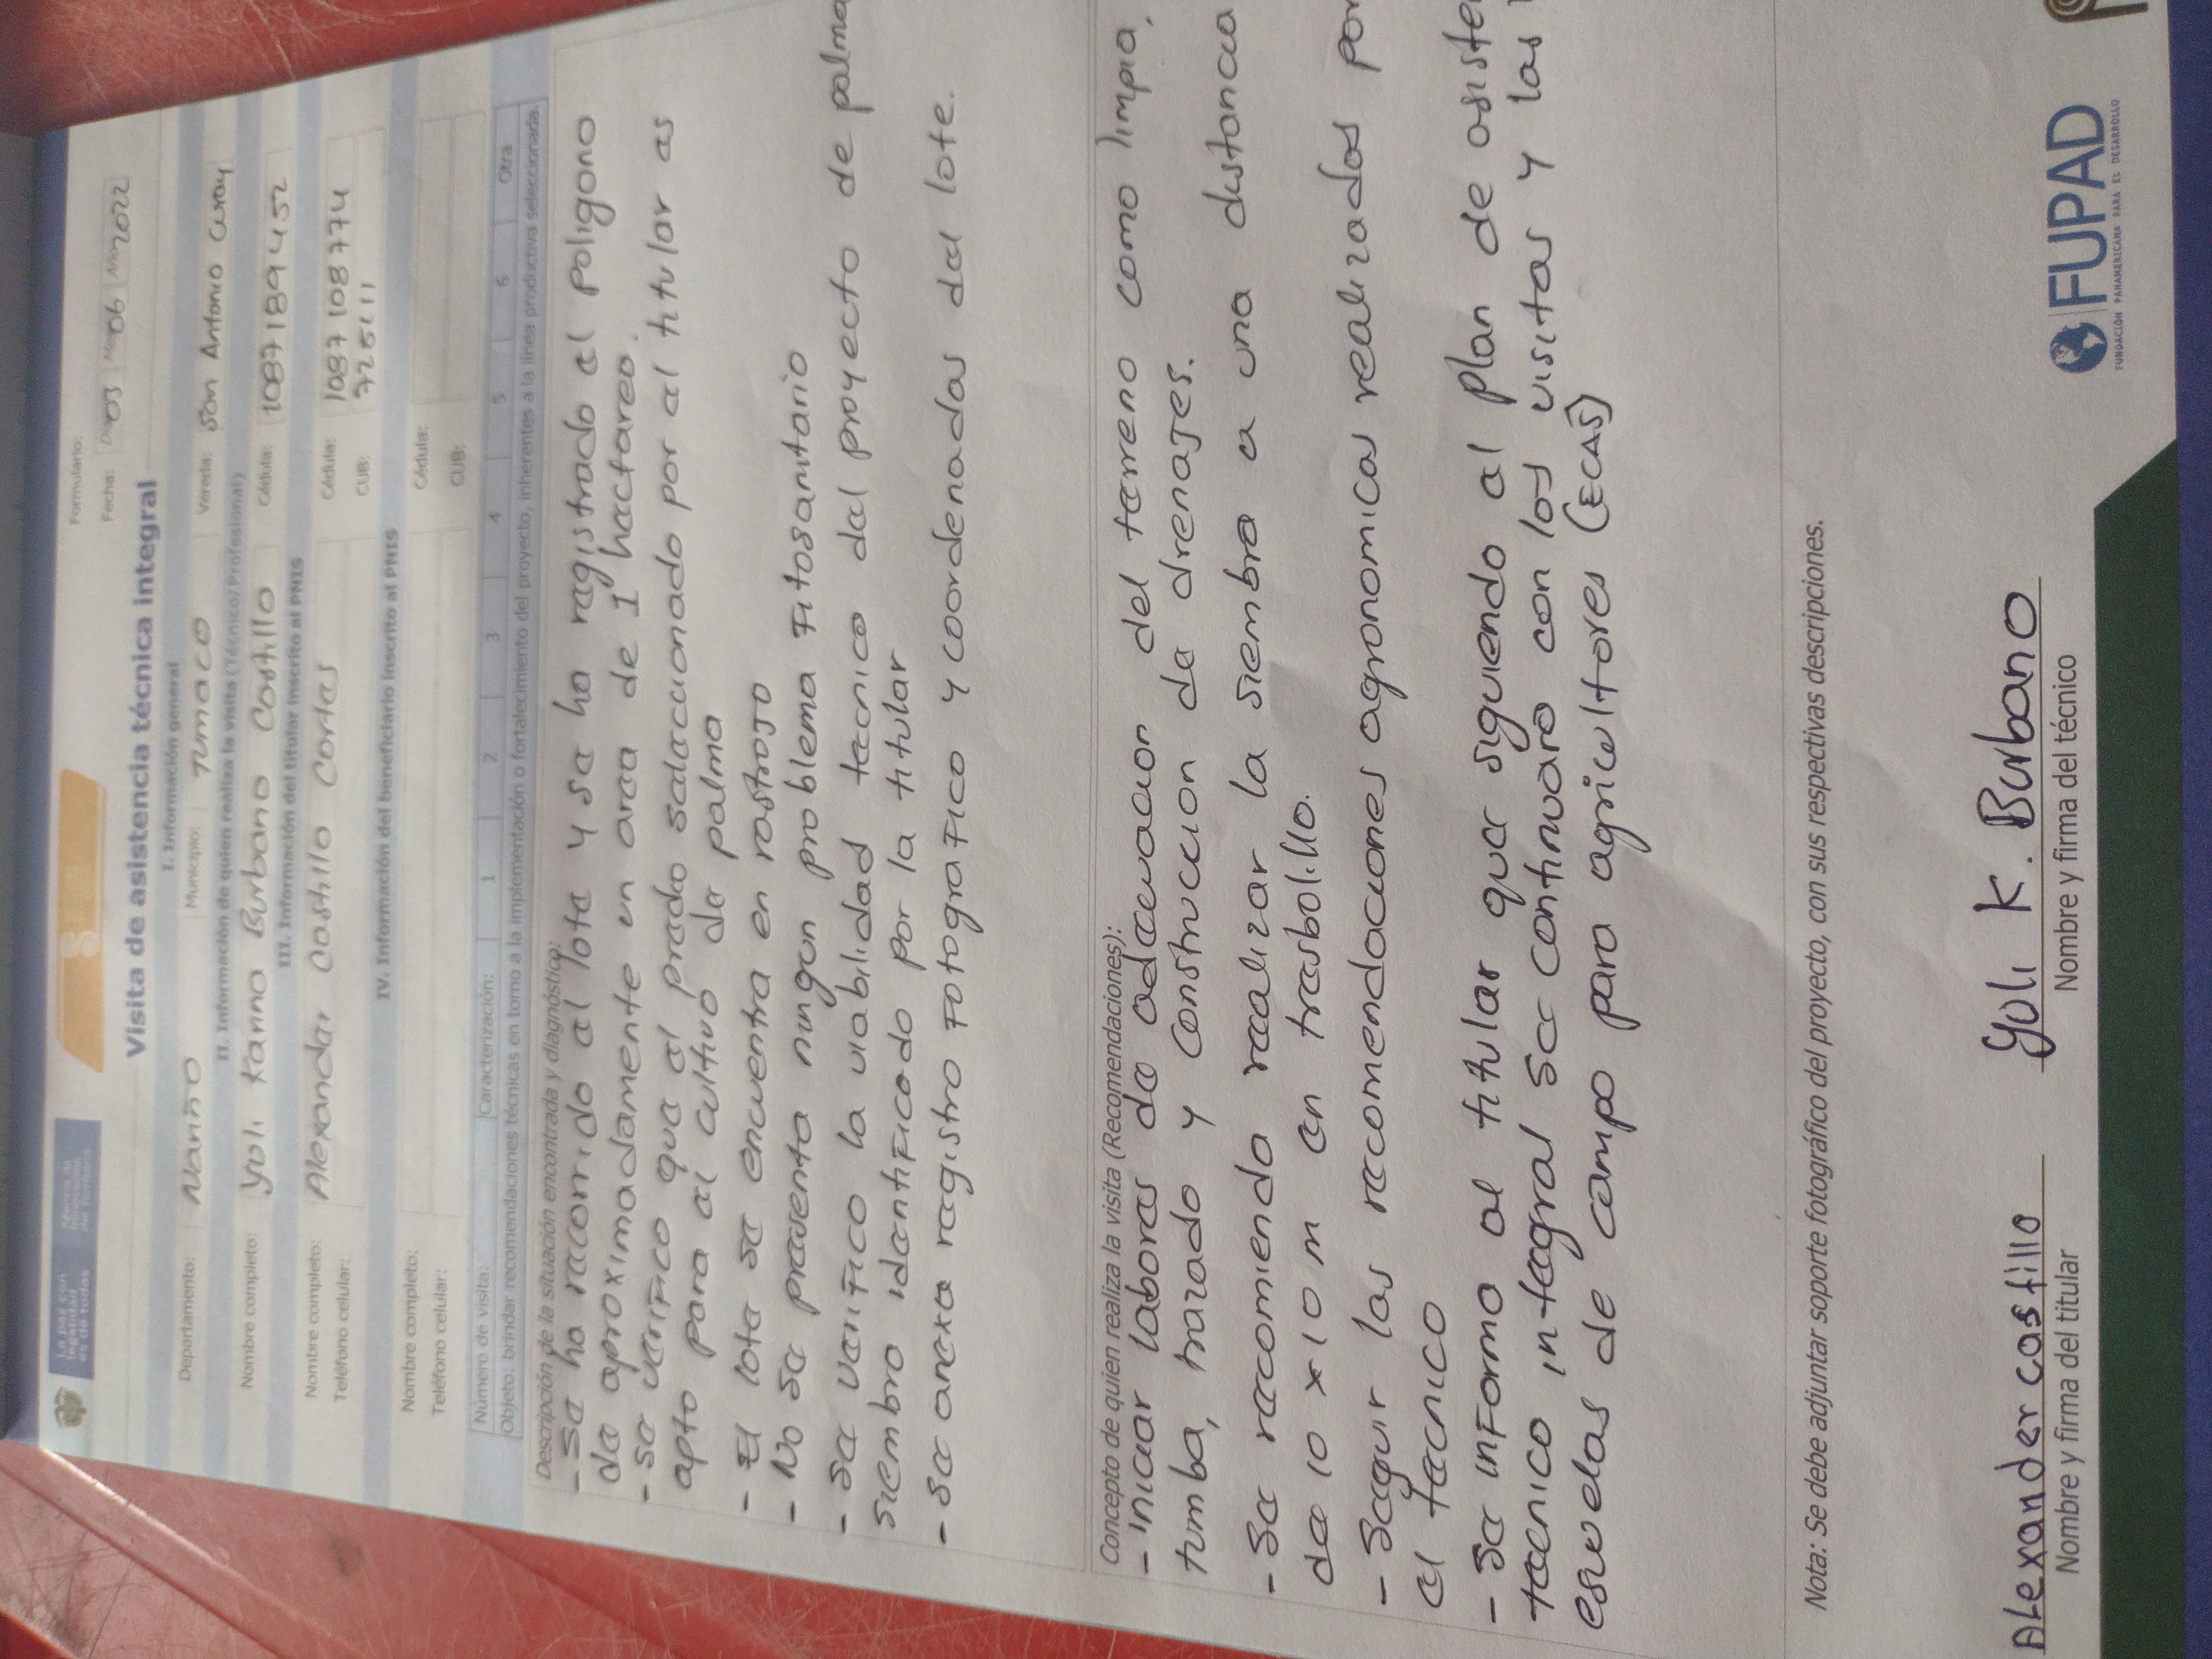 La paz con
legalidad
es de todos
Agencia de
Renovación
del Territorio
Formulario:
Fecha: Dia 03 Mes 06 Año 2022
Visita de asistencia técnica integral
I. Información general
Departamento: Nariño Municipio: Tumaco Vereda: San Antonio Curay
II. Información de quien realiza la visita (Técnico/Profesional)
Nombre completo: Yuli Burbano Costillo Cédula: 1087189452
III. Información del titular inscrito al PNIS
Nombre completo: Alexander Costillo Cortes Cédula: 1087108774
Teléfono celular: CUB: 725111
IV. Información del beneficiario inscrito al PNIS
Nombre completo: Cédula:
Teléfono celular: CUB:
Número de visita: Caracterización: 1 2 3 4 5 6 Otra
Objeto: brindar recomendaciones técnicas en torno a la implementación o fortalecimiento del proyecto, inherentes a la línea productiva seleccionada.
Descripción de la situación encontrada y diagnóstico:
- Se ha recorrido el lote y se ha registrado el poligono
de aproximadamente un area de 1 hectarea.
- se verifico que el predio seleccionado por el titular es
apto para el cultivo de palma
- El lote se encuentra en rastrojo
- No se presenta ningun problema Fitosanitario
- se verifico la viabilidad tecnica del proyecto de palma
siembra identificado por la titular
- se anexa registro Fotografico y coordenadas del lote.
Concepto de quien realiza la visita (Recomendaciones):
- iniciar labores de adecuacion del terreno como limpia,
tumba, trazado y construccion de drenajes.
- Se recomienda realizar la siembra a una distancia
de 10 x 10 m en tresbolillo.
- Seguir las recomendaciones agronomicas realizadas por
el tecnico
- Se informa al titular que siguiendo el plan de
tecnico integral se continuara con las visitas y las
escuelas de campo para agricultores (ECAS)
Nota: Se debe adjuntar soporte fotográfico del proyecto, con sus respectivas descripciones.
Alexander costillo Yuli K. Burbano
Nombre y firma del titular Nombre y firma del técnico
FUPAD
FUNDACIÓN PANAMERICANA PARA EL DESARROLLO